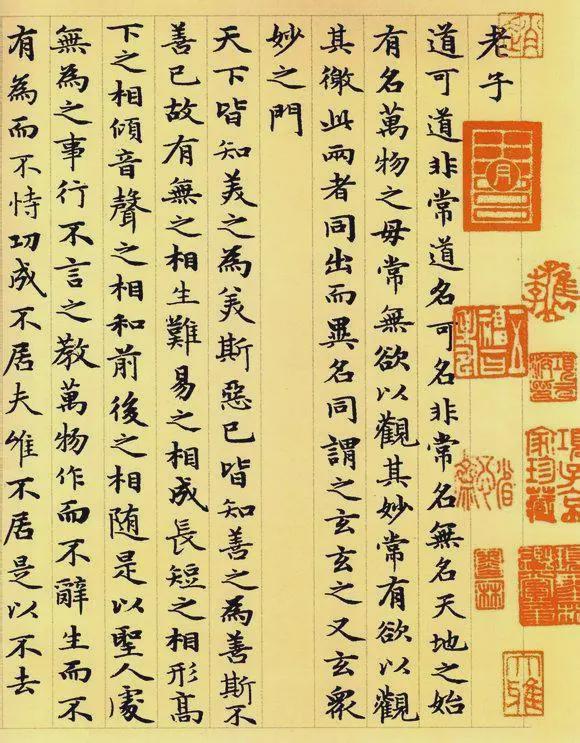 老子
道可道非常道名可名非常名無名天地之始
有名萬物之母常無欲以觀其妙常有欲以觀
其徼此兩者同出而異名同謂之玄玄之又玄眾
妙之門
天下皆知美之為美斯惡已皆知善之為善斯不
善已故有無之相生難易之相成長短之相形高
下之相傾音聲之相和前後之相随是以聖人處
無為之事行不言之教萬物作而不辭生而不
有為而不恃功成不居夫唯不居是以不去
項子京
家珍藏
墨林